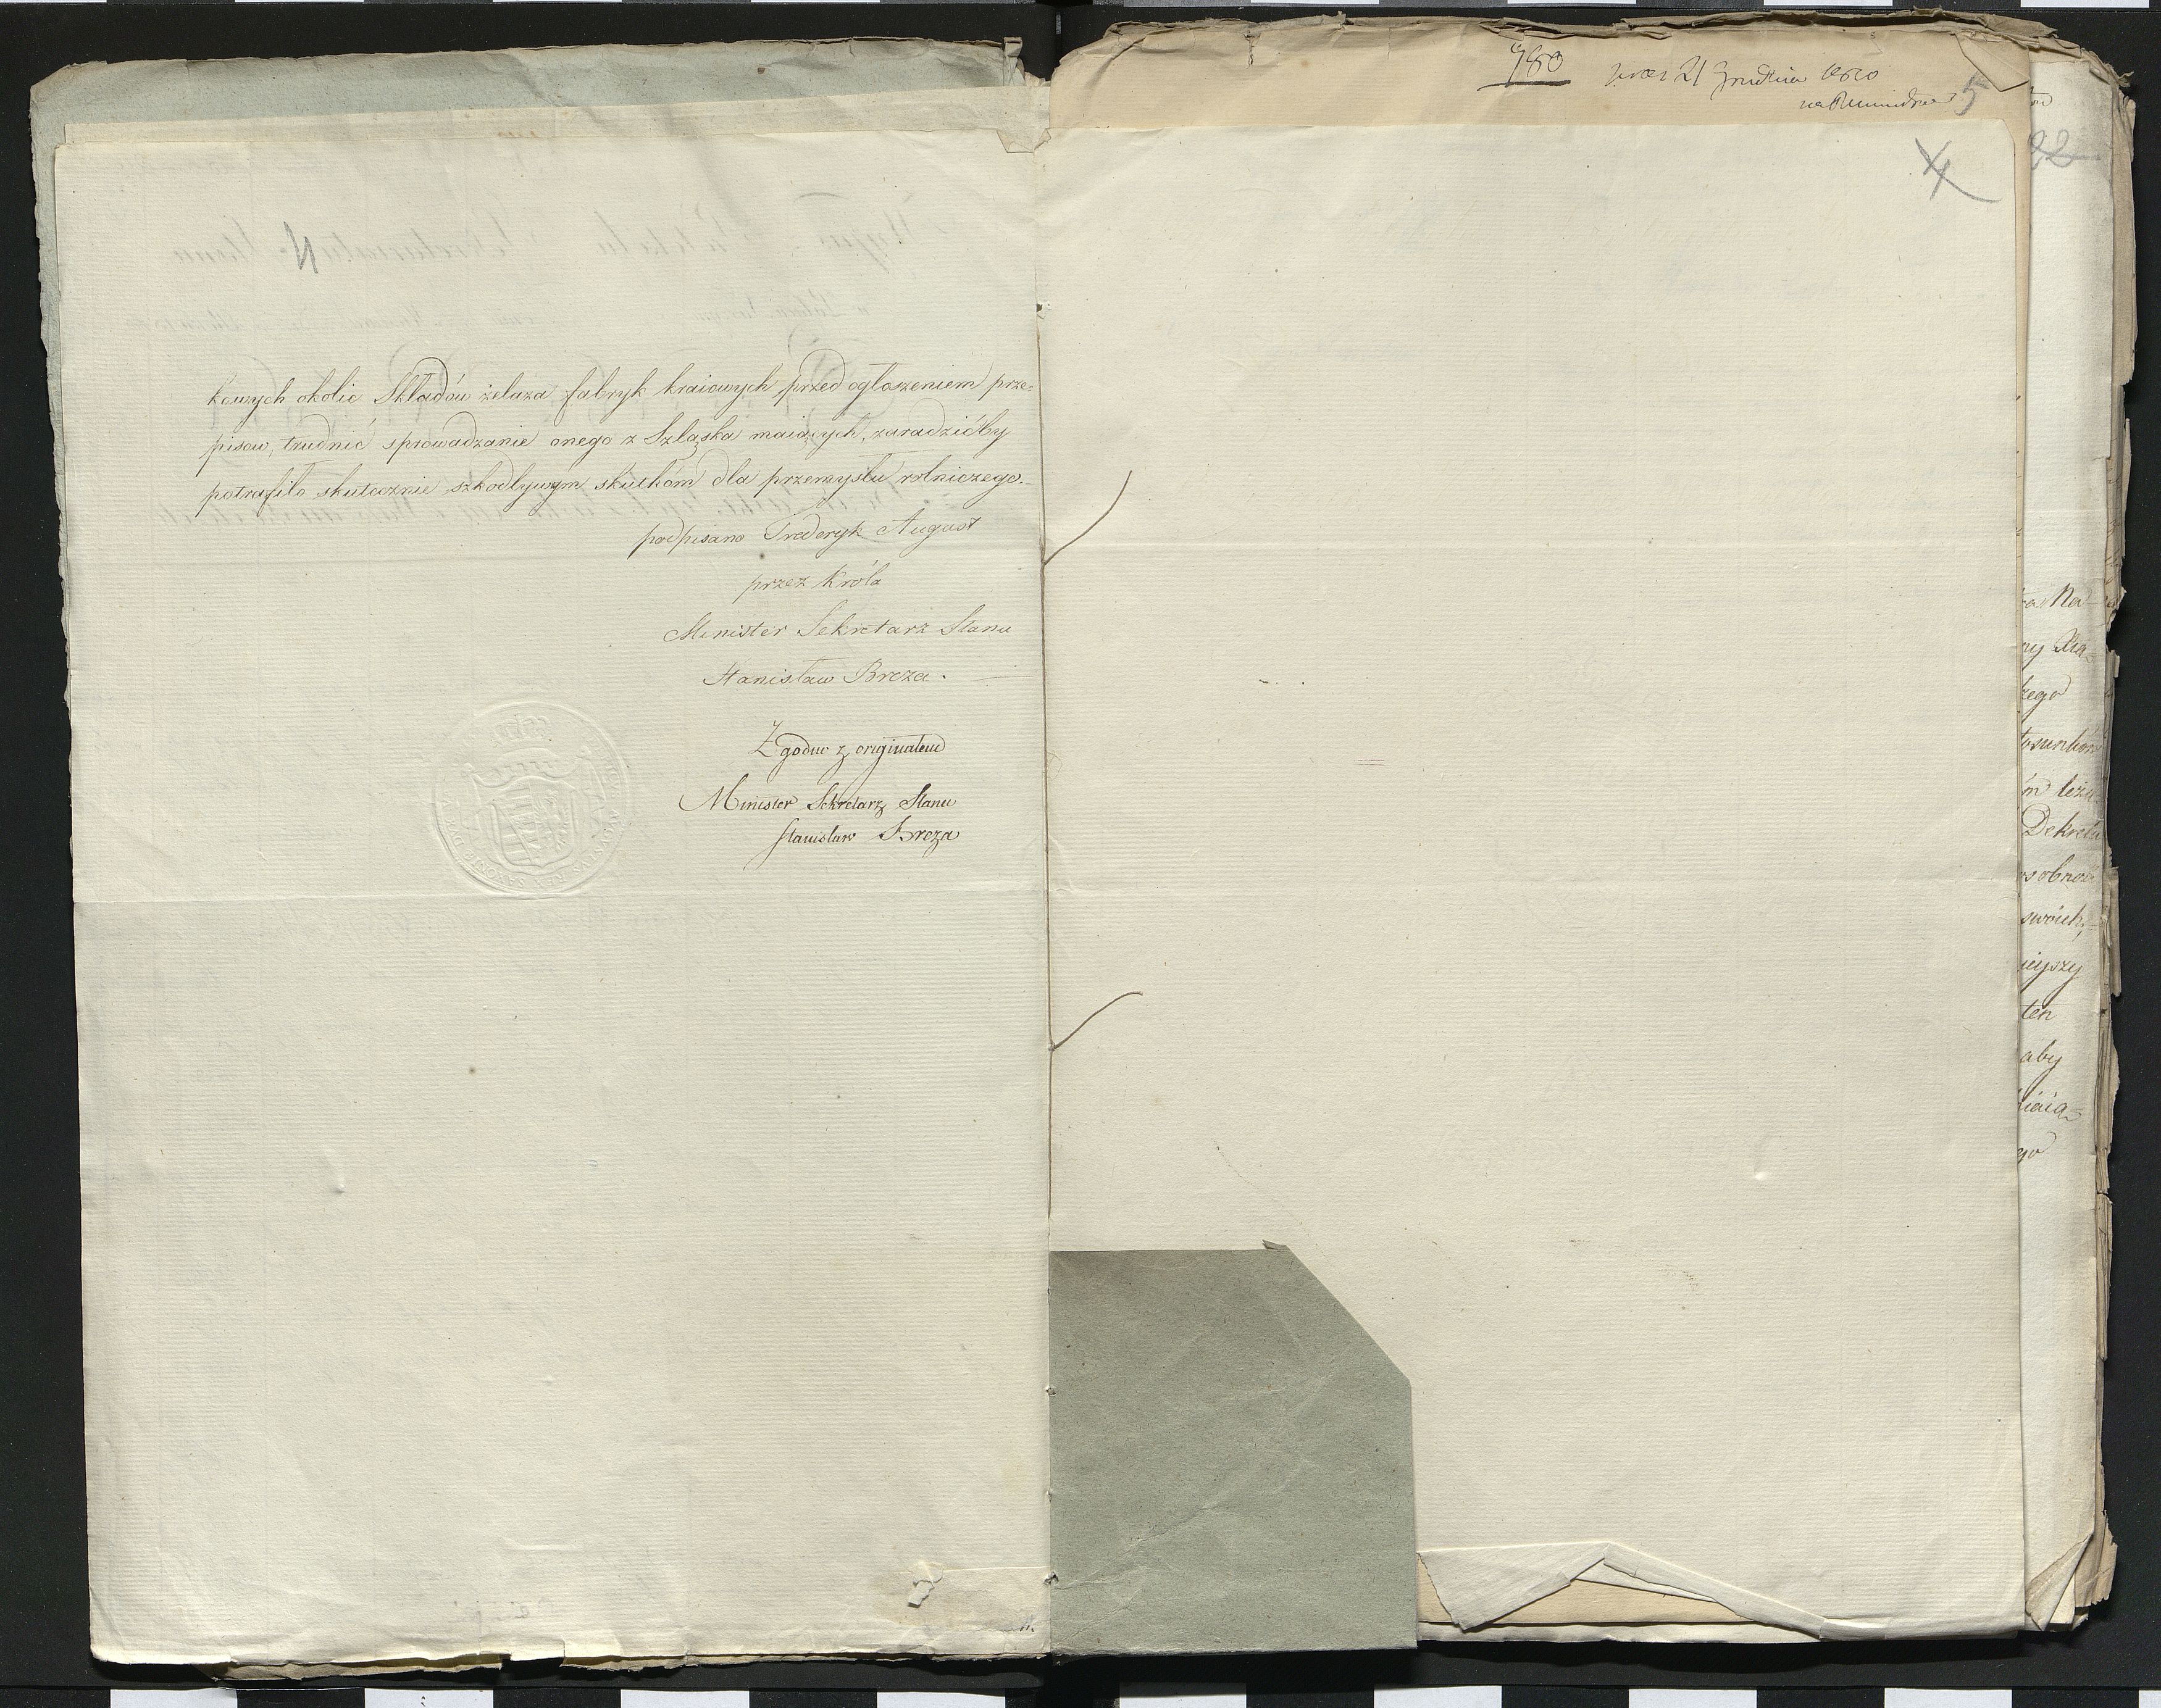 kowych okolic Składów żelaza fabryk kraiowych przed ogłoszeniem prze=
pisow, trudnić sprowadzanie onego z Szląska maiących, zaradzićby
potrafiło skutecznie szkodlywym skutkóm dla przemysłu rolniczego.
podpisano Frederyk August
przez Króla
Minister Sekretarz Stanu
Stanisław Breza.
Zgodno z originałem
Minister Sekretarz Stanu
Stanisław Breza
980
21 Grudnia 1810
5
4
22
Na=
zego
Dekretu
swoich,
ten
aby